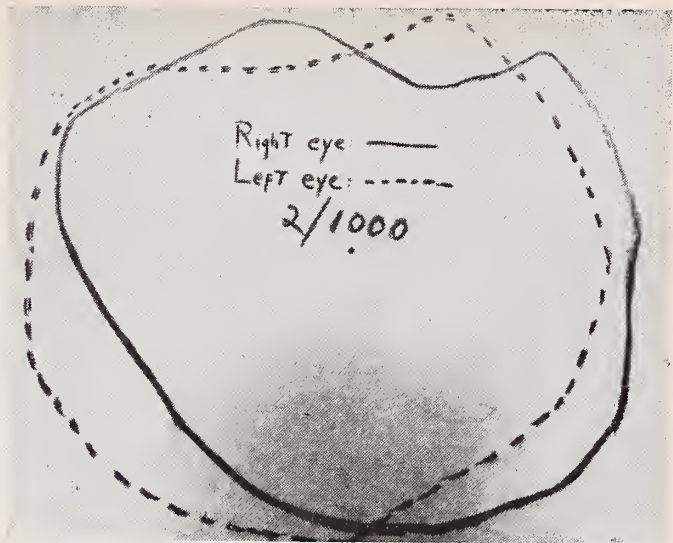 Right eye:
Left eye:
2/1000